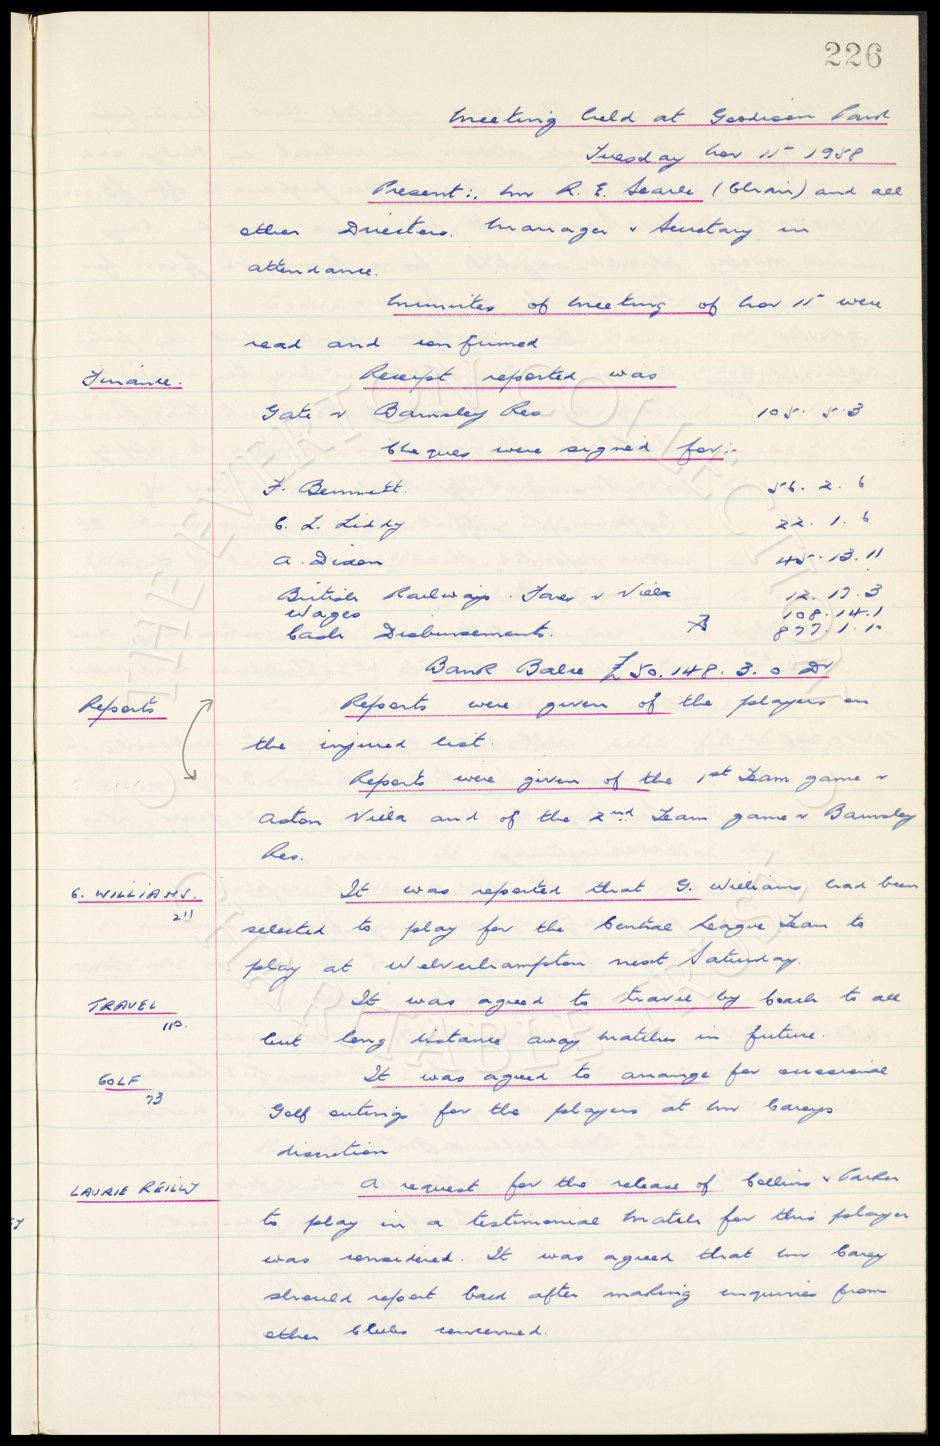 226
Meeting held at Goodison Park
Tuesday Nov 11th 1958
Present:. Mr R. E. Searle (Chair) and all
other Directors. Manager & Secretary in
attendance.
Minutes of Meeting of Nov 11th were
read and confirmed
Finance.
Receipt reported was
Gate v Barnsley Res 105. 5. 3
Cheques were signed for:-
F. Bennett. 56. 2. 6
C. L. Liddy 22. 1. 6
A. Dixon 45. 13. 11
British Railways. Fares v Villa 12. 17. 3
Wages 108. 14. 1
Cash Disbursements. 877. 1. 10
Bank Balce £50.148. 3. 0 Dr
Reports
Reports were given of the players on
the injured list.
Reports were given of the 1st Team game v
Aston Villa and of the 2nd Team game v Barnsley
Res.
G. WILLIAMS.
211
It was reported that G. Williams had been
selected to play for the Central League Team to
play at Wolverhampton next Saturday.
TRAVEL
110.
It was agreed to travel by Coach to all
but long distance away matches in future.
GOLF
73
It was agreed to arrange for occasional
Golf outings for the players at Mr Careys
discretion
LAURIE REILLY
A request for the release of Collins & Parker
to play in a testimonial Match for this player
was considered. It was agreed that Mr Carey
should report back after making enquiries from
other Clubs concerned.
THE EVERTON COLLECTION
CHARITABLE TRUST